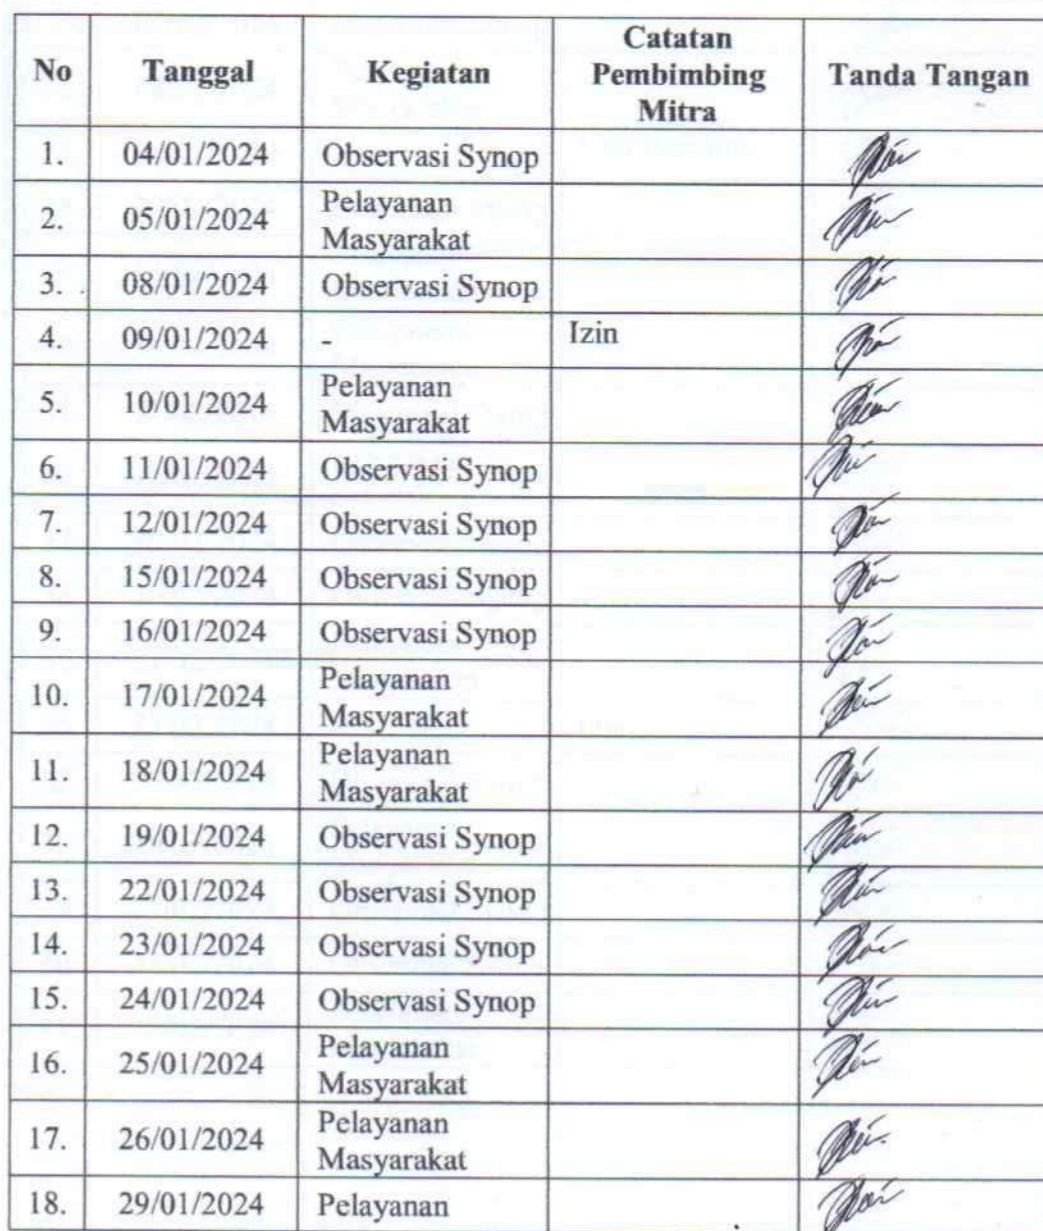 No Tanggal Kegiatan Catatan Pembimbing Mitra Tanda Tangan
1. 04/01/2024 Observasi Synop
2. 05/01/2024 Pelayanan Masyarakat
3. 08/01/2024 Observasi Synop
4. 09/01/2024 - Izin
5. 10/01/2024 Pelayanan Masyarakat
6. 11/01/2024 Observasi Synop
7. 12/01/2024 Observasi Synop
8. 15/01/2024 Observasi Synop
9. 16/01/2024 Observasi Synop
10. 17/01/2024 Pelayanan Masyarakat
11. 18/01/2024 Pelayanan Masyarakat
12. 19/01/2024 Observasi Synop
13. 22/01/2024 Observasi Synop
14. 23/01/2024 Observasi Synop
15. 24/01/2024 Observasi Synop
16. 25/01/2024 Pelayanan Masyarakat
17. 26/01/2024 Pelayanan Masyarakat
18. 29/01/2024 Pelayanan